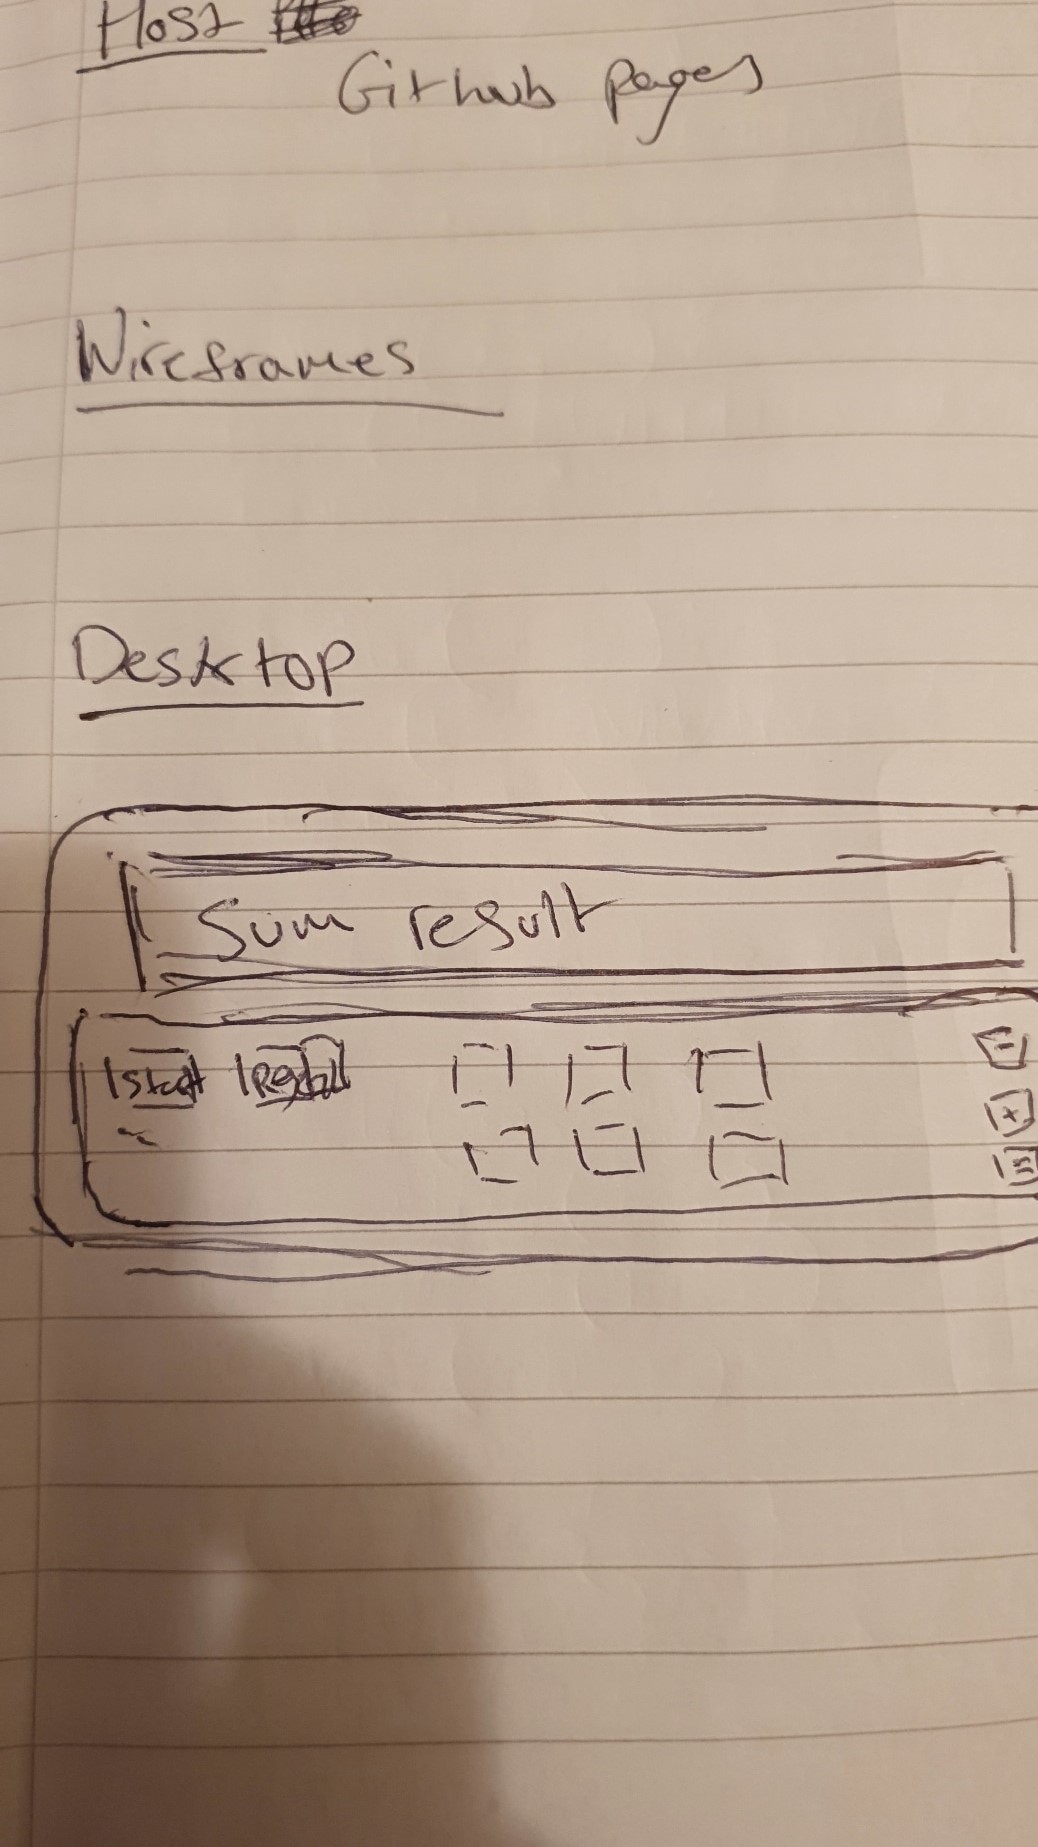 Host
Github pages
Wireframes
Desktop
Sum result
Start
-
+
=